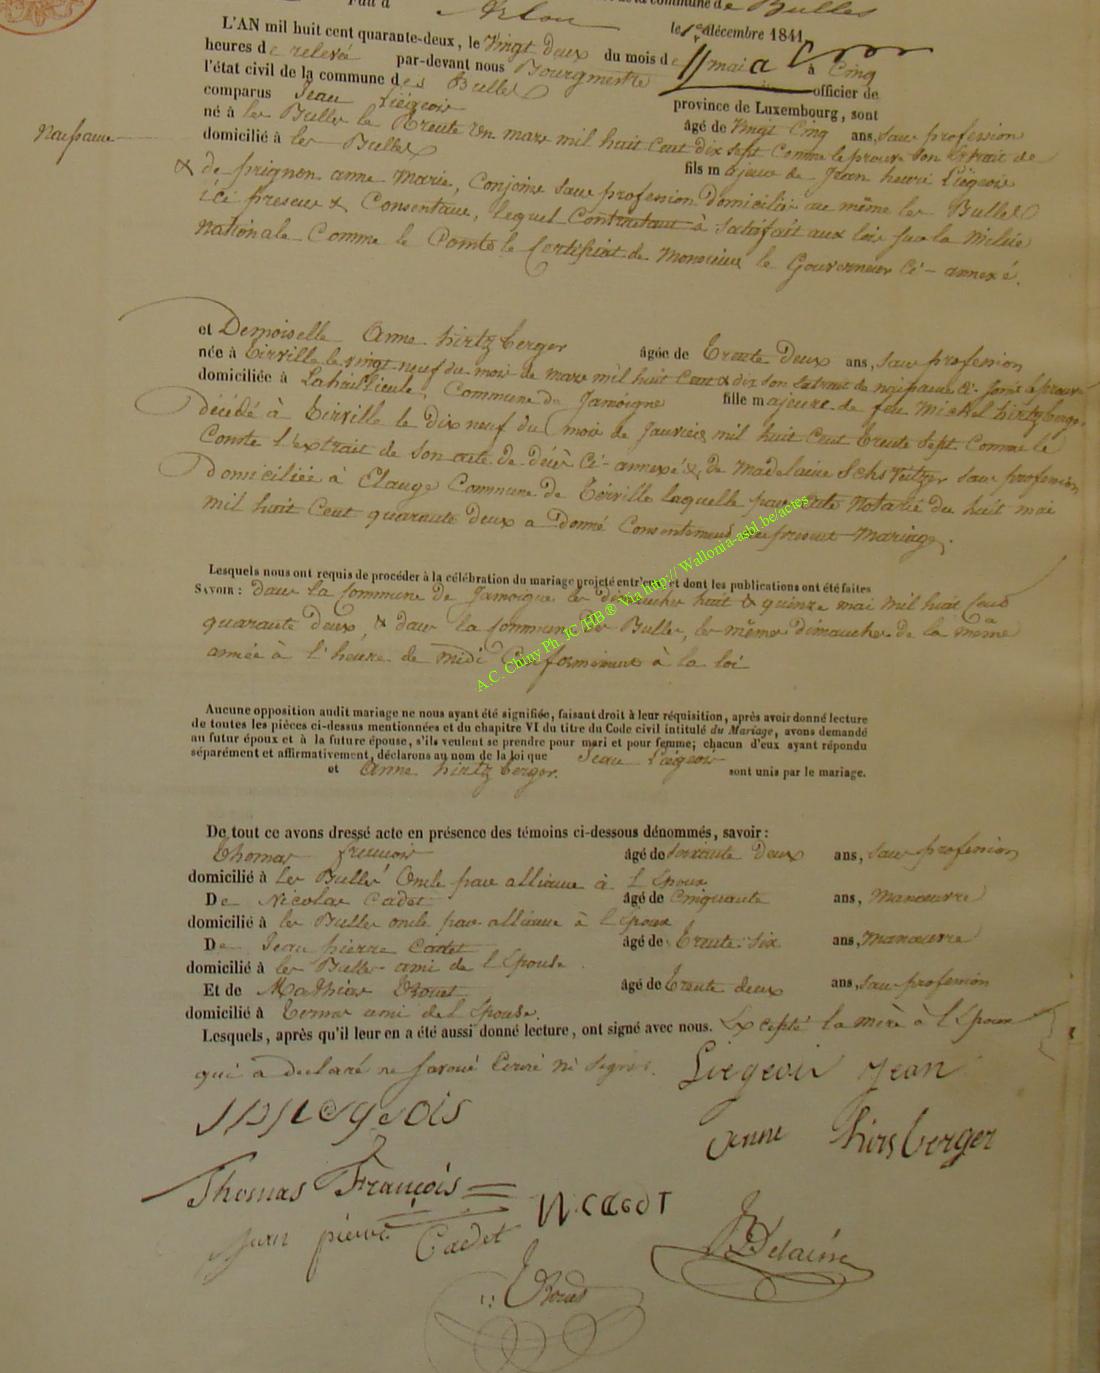 Fait à Arlon le 1er décembre 1841.
L'AN mil huit cent quarante-deux, le vingt deux du mois de mai à Cinq
heures de relevée par-devant nous Bourgmestre officier de
l'état civil de la commune des Bulles province de Luxembourg, sont
comparus Jean Liégeois âgé de vingt Cinq ans, sans profession
né à les Bulles le trente un mars mil huit Cent dix sept Comme le prouve son Extrait de
Naissance
domicilié à les Bulles fils majeur de Jean henri Liégeois
& de prignon anne marie, Conjoins sans profession Domiciliés au même les Bulles
ici présens & Consentans, lequel Contractant à Satisfait aux lois sur la milice
nationale Comme le Constate le Certificat de Monsieur le Gouverneur Ci-annexé.
et Demoiselle Anne hirtzberger âgée de trente Deux ans, sans profession
née à le vingt neuf du mois de mars mil huit Cent & dix son Extrait de naissance Ci-joint le prouve
domiciliée à Lahaillieule, Commune de Jamoigne fille majeure de feu Michel hirtzberger
décédé à le dix neuf du mois de Janvier mil huit Cent trente sept Comme le
Conste l'extrait de son acte de décès Ci-annexé & de Madelaine sans profession
Domiciliée à Commune de laquelle par acte Notarié du huit mai
mil huit Cent quarante deux a Donné Consentement au présent Mariage.
Lesquels nous ont requis de procéder à la célébration du mariage projeté entr'eux et dont les publications ont été faites
SAVOIR : dans la Commune de Jamoigne les dimanches huit & quinze mai mil huit Cent
quarante deux, & dans la Commune des Bulles, les mêmes dimanches de la même
année à l'heure de midi Conformément à la loi
Aucune opposition audit mariage ne nous ayant été signifiée, faisant droit à leur réquisition, après avoir donné lecture
de toutes les pièces ci-dessus mentionnées et du chapitre VI du titre du Code civil intitulé du Mariage, avons demandé
au futur époux et à la future épouse, s'ils veulent se prendre pour mari et pour femme; chacun d'eux ayant répondu
séparément et affirmativement, déclarons au nom de la loi que Jean Liégeois
et Anne hirtzberger. sont unis par le mariage.
De tout ce avons dressé acte en présence des témoins ci-dessous dénommés, savoir :
Thomas françois âgé de soixante deux ans, sans profession
domicilié à les Bulles Oncle par alliance à l'Epoux
De Nicolas Cadet âgé de Cinquante ans, Manœuvre
domicilié à les Bulles oncle par alliance à l'Epoux
De Jean pierre Cadet âgé de trente-six ans, Manœuvre
domicilié à les Bulles ami de l'Epouse
Et de Mathias âgé de trente deux ans, sans profession
domicilié à ami de l'Epouse.
Lesquels, après qu'il leur en a été aussi donné lecture, ont signé avec nous. Excepté la mère à l'Epoux
qui a déclaré ne savoir Ecrire ni signer. Liegeois Jean
Anne hirsberger
Thomas François N. Cadet
Jean pierre Cadet
A.C. Chiny Ph JC /HB® Via http:// Wallonia-asbl.be/actes